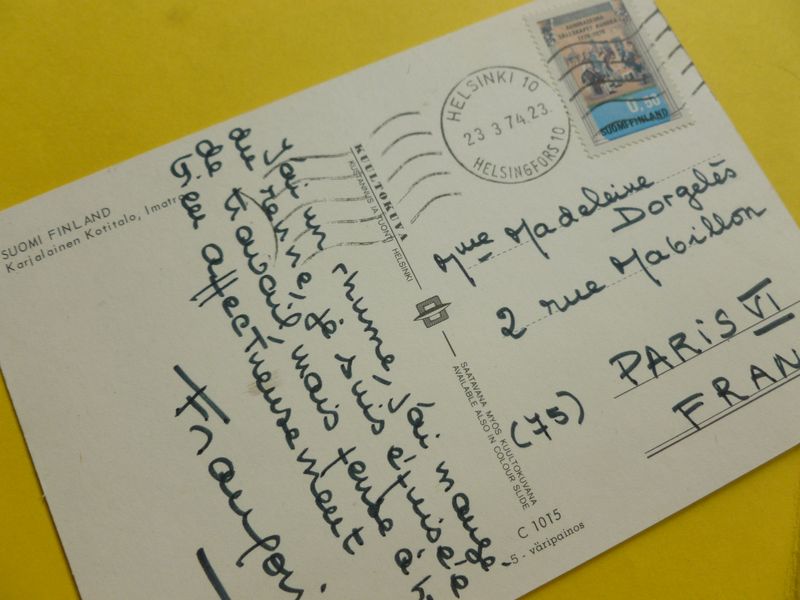 SUOMI FINLAND
Karjalainen Kotitalo, Imatra
J'ai un rhume, j'ai mangé
du renne, je suis épuisée
de travail, mais tendre à
bien affectueusement
Françoi
KUULTOKUVA
KUSTANNUS JA TUONTI HELSINKI
SAATAVANA MYÖS KUULTOKUVANA
AVAILABLE ALSO IN COLOUR SLIDE
C 1015
5 - väripainos
HELSINKI 10
23 3 74.23
HELSINGFORS 10
SÄLLSKAPET AURORA
1770-1970
0,50
SUOMI FINLAND
Mme Madeleine
Dorgelès
2 rue Mabillon
PARIS VI
(75)
FRAN